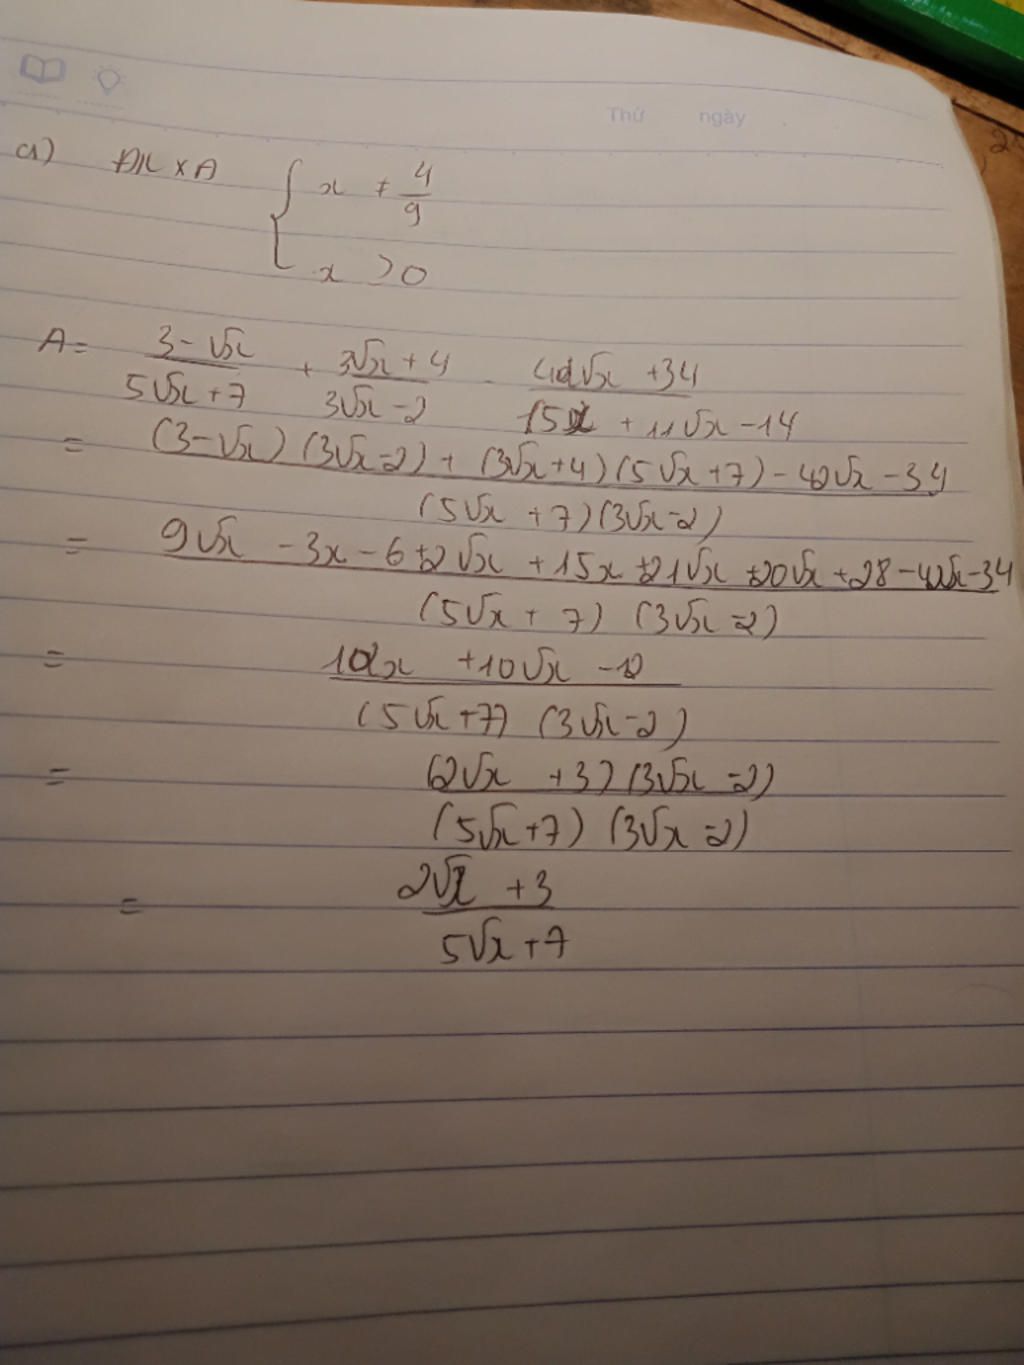 Thứ ngày
a) ĐKXĐ { x ≠ 4/9
x > 0
A = (3-√x)/(5√x+7) + (3√x+4)/(3√x-2) - (42√x+34)/(15x+11√x-14)
= ((3-√x)(3√x-2)+(3√x+4)(5√x+7)-42√x-34)/((5√x+7)(3√x-2))
= (9√x-3x-6+2√x+15x+21√x+20√x+28-42√x-34)/((5√x+7)(3√x-2))
= (12x+10√x-12)/((5√x+7)(3√x-2))
= ((2√x+3)(3√x-2))/((5√x+7)(3√x-2))
= (2√x+3)/(5√x+7)